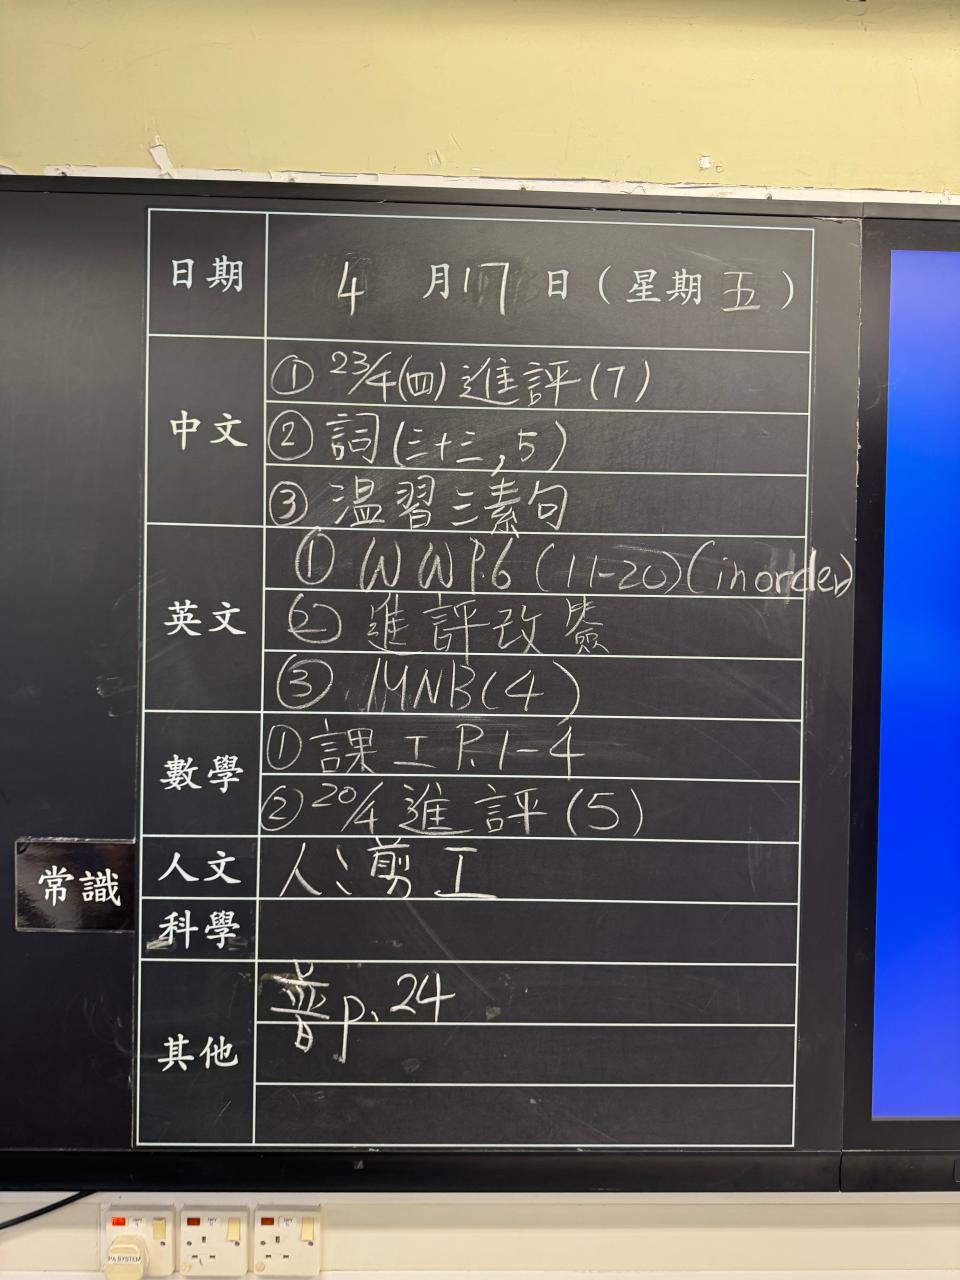 日期 4 月17 日（星期 五）
中文
① 23/4(四) 進評(7)
② 詞(三十三, 5)
③ 温習三素句
英文
① WW P.6 (11-20) (in order)
② 進評改簽
③ MNB(4)
數學
① 課工 P.1-4
② 20/4 進評(5)
人文 人: 剪工
常識
科學
其他
普 p. 24
PA SYSTEM